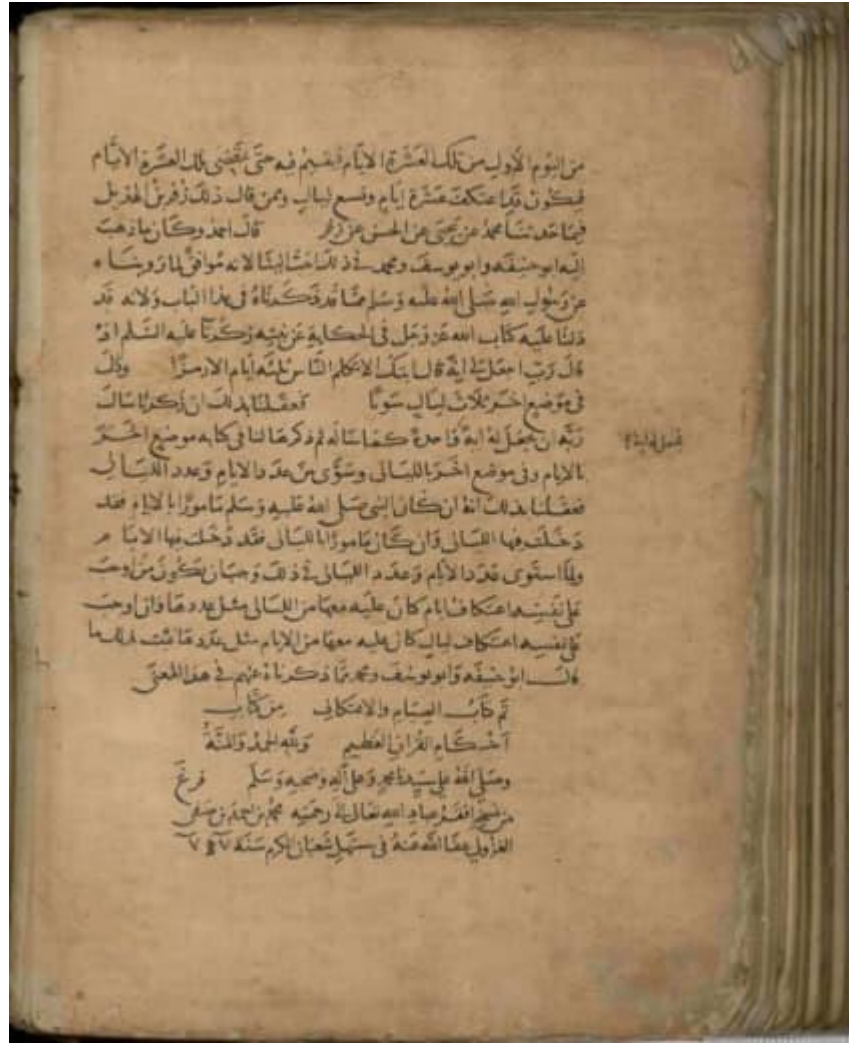 من اليوم الأول من تلك العشرة الأيام فيقيم فيه حتى تنقضي تلك العشرة الأيام
فيكون قد اعتكف عشرة أيام وتسع ليال وممن قال ذلك زفر بن الهذيل
فيما حدثنا محمد عن يحيى عن الحسن عن زفر قال احمد وكان ما ذهب
إليه ابو حنيفة وابو يوسف ومحمد في ذلك احب الينا لانه موافق لما روينا ه
عن رسول الله صلى الله عليه وسلم مما قد ذكرناه في هذا الباب ولانه قد
دلنا عليه كتاب الله عز وجل في الحكاية عن نبيه زكريا عليه السلم اذ
قال رب اجعل لي اية قال ايتك الا تكلم الناس ثلثة أيام الا رمزا وقال
في موضع اخر ثلاث ليال سويا فعقلنا بذلك ان زكريا سال
ربه ان يجعل له اية واحدة كما ساله ثم ذكرها لنا في كتابه موضع اخر
بالايام وفي موضع اخر بالليالي وسوى من عدد الايام وعدد الليالي
فعقلنا بذلك انه ان كان النبي صلى الله عليه وسلم مامورا بالايام فقد
دخلت فيها الليالي وان كان مامورا بالليالي فقد دخلت فيها الايا م
ولما استوى عدد الأيام وعدد الليالي في ذلك وجب ان يكون من اوجب
على نفسه اعتكاف ايام كان عليه معها من الليالي مثل عددها وان اوجب
على نفسه اعتكاف ليال كان عليه معها من الايام مثل عددها فثبت بذلك ما
قال ابو حنيفة وابو يوسف ومحمد مما ذكرناه عنهم في هذا المعنى
تم كتاب الصيام والاعتكاف من كتاب
أحكام القران العظيم ولله الحمد والمنة
وصلى الله على سيدنا محمد وعلى آله وصحبه وسلم فرغ
من نسخه افقر عباد الله تعالى الى رحمته محمد بن احمد بن صفي
الغزولي عفا الله عنه في مستهل شعبان المكرم سنة